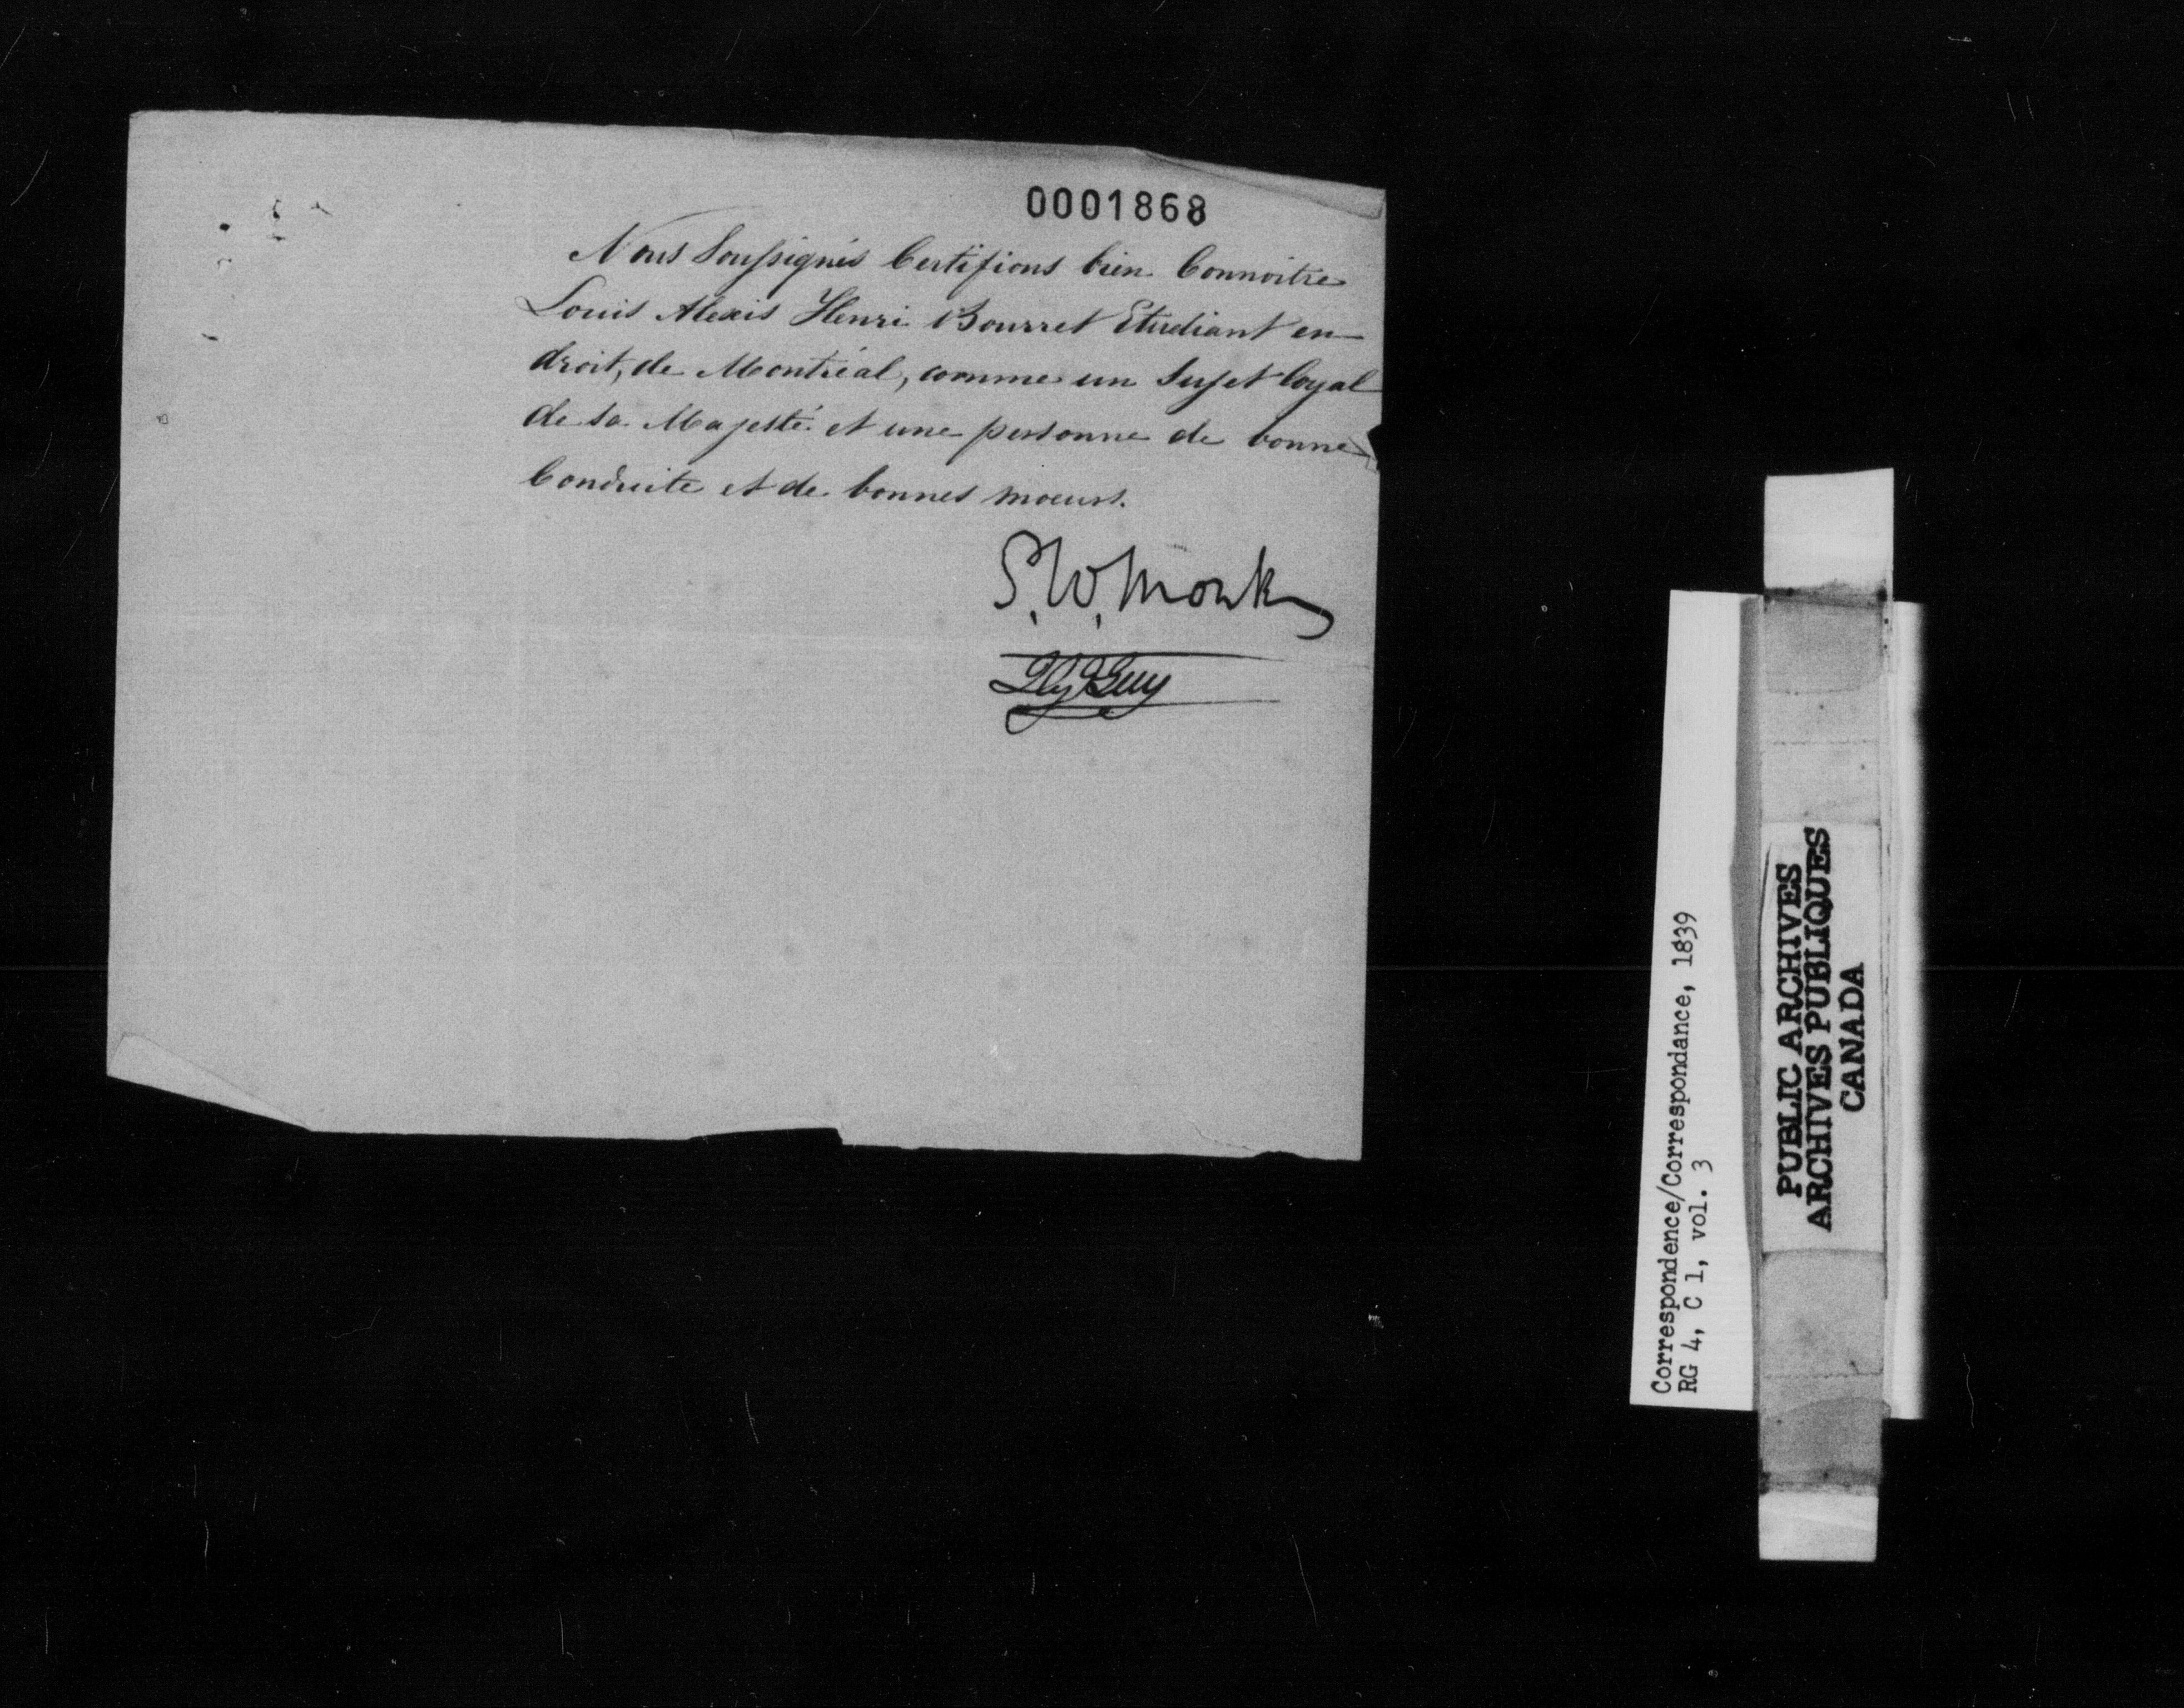 0001868
Nous Soussignés Certifions bien Connoitre
Louis Alexis Henri Bourret Etudiant en
droit, de Montréal, comme un Sujet loyal
de sa Majesté et une personne de bonne
Conduite et de bonnes moeurs.
S. W. Monk
Guy
Correspondence/Correspondance, 1839
RG 4, C 1, vol. 3
PUBLIC ARCHIVES
ARCHIVES PUBLIQUES
CANADA